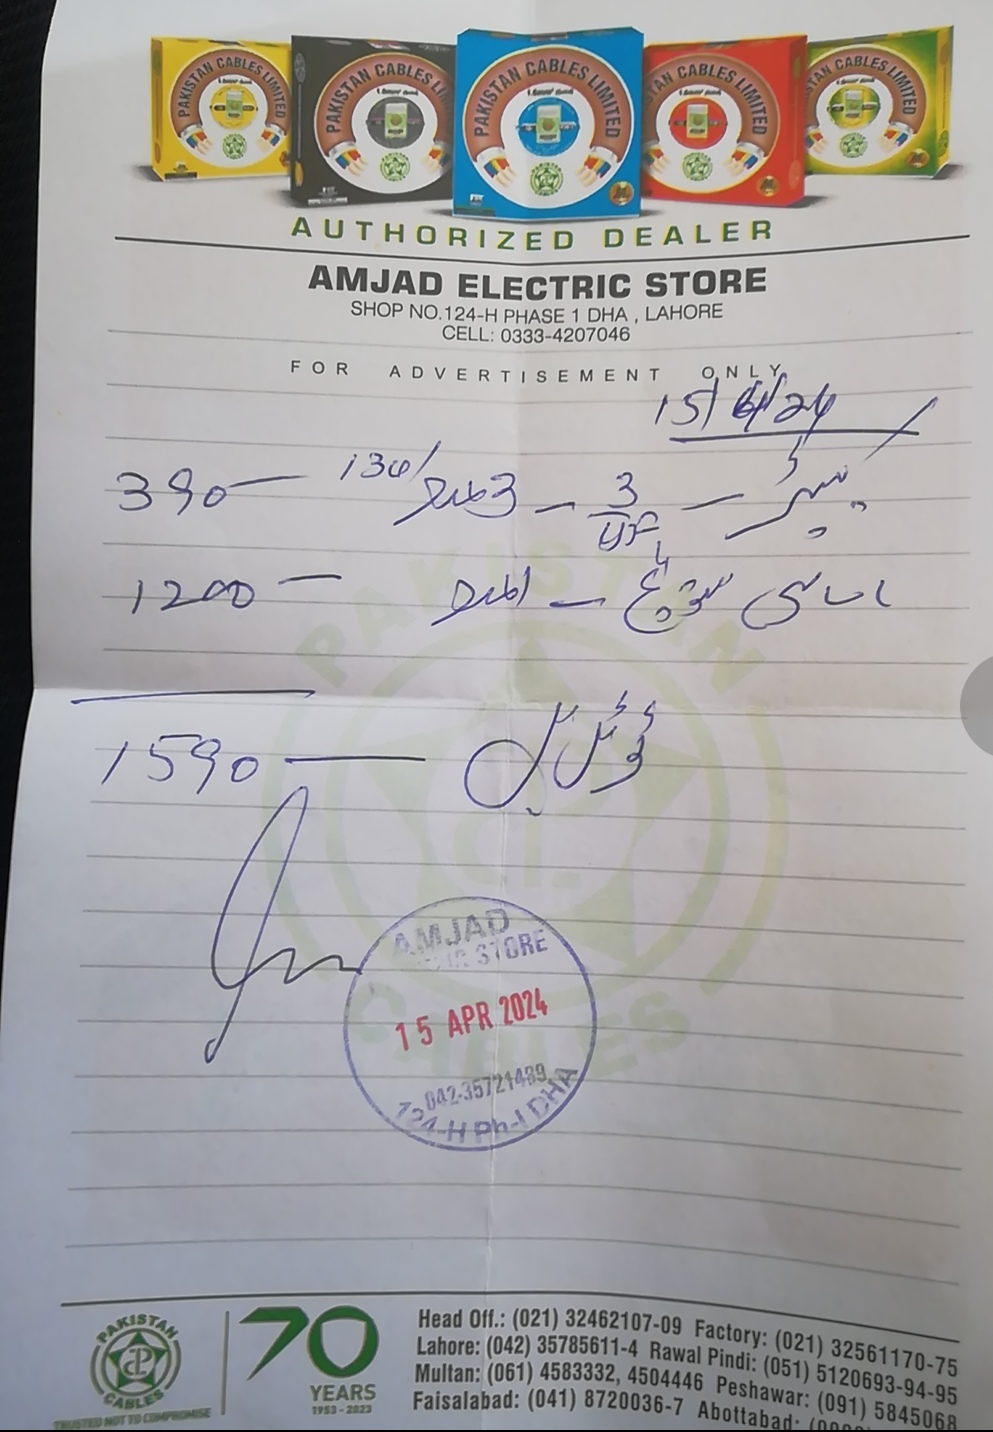 PAKISTAN CABLES LIMITED
PAKISTAN CABLES LIMITED
PAKISTAN CABLES LIMITED
PAKISTAN CABLES LIMITED
PAKISTAN CABLES LIMITED
AUTHORIZED DEALER
AMJAD ELECTRIC STORE
SHOP NO.124-H PHASE 1 DHA , LAHORE
CELL: 0333-4207046
FOR ADVERTISEMENT ONLY
15/4/24
3 عدد 130/ — 390
1 عدد — 1200
ٹوٹل بل — 1590
AMJAD
STORE
15 APR 2024
042-35721489
124-H Ph-I DHA
PAKISTAN CABLES
PAKISTAN CABLES
TRUSTED NOT TO COMPROMISE
70 YEARS
1953 - 2023
Head Off.: (021) 32462107-09 Factory: (021) 32561170-75
Lahore: (042) 35785611-4 Rawal Pindi: (051) 5120693-94-95
Multan: (061) 4583332, 4504446 Peshawar: (091) 5845068
Faisalabad: (041) 8720036-7 Abottabad: